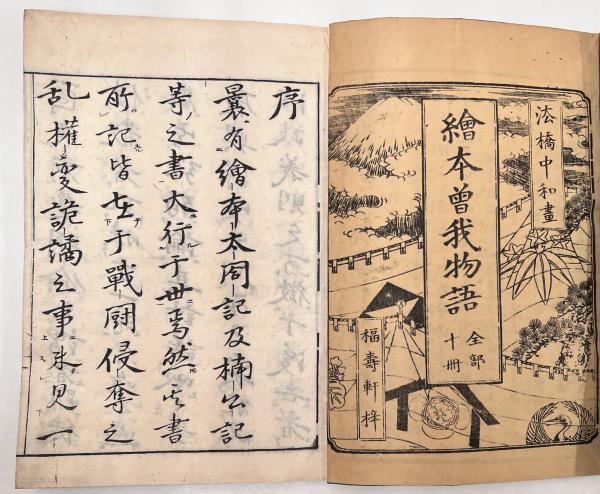 法橋中和畫
繪本曾我物語
全部
十冊
福壽軒梓
序
曩有繪本太閤記及楠公記
等之書大行于世焉然其書
所記皆在于戰鬪侵奪之
乱權變詭譎之事未見一